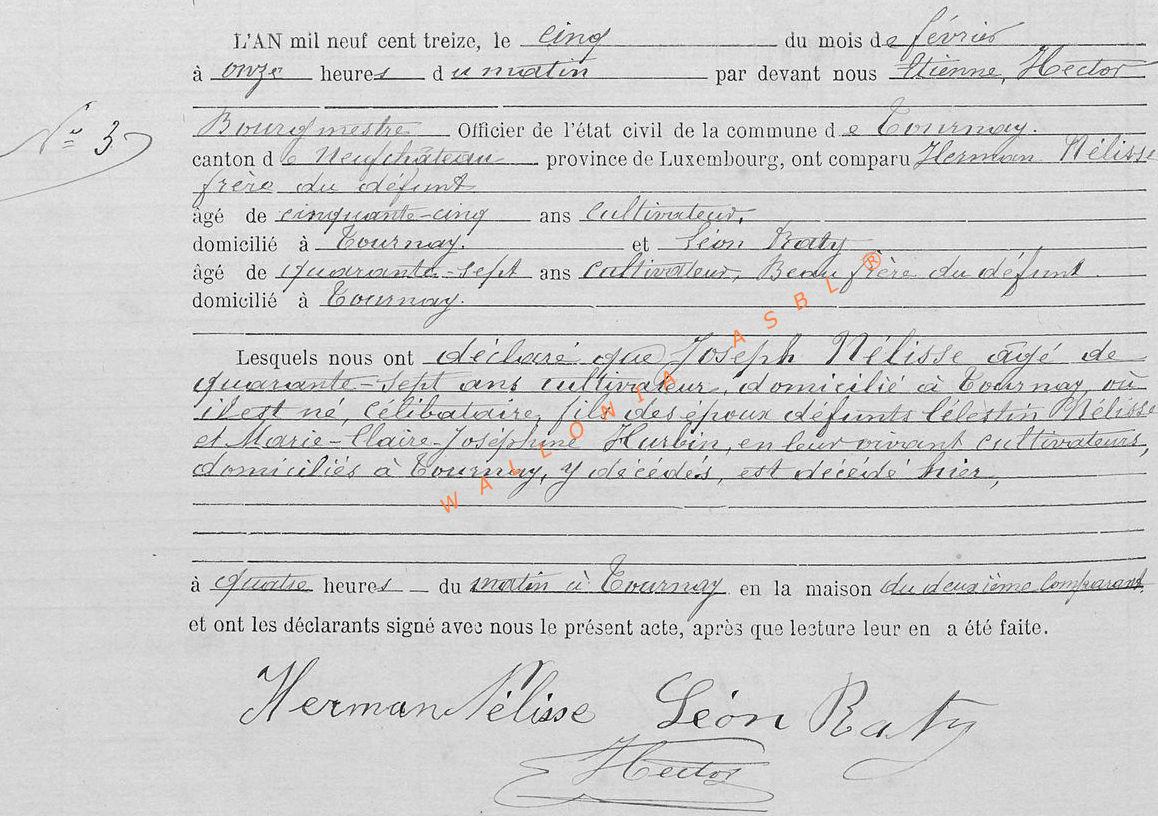 L'AN mil neuf cent treize, le cinq du mois de février
à onze heures du matin par devant nous Etienne, Hector
N° 3
Bourgmestre Officier de l'état civil de la commune de Tournay.
canton de Neufchâteau province de Luxembourg, ont comparu Herman Nélisse
frère du défunt
âgé de cinquante-cinq ans cultivateur,
domicilié à Tournay. et Léon Raty
âgé de quarante-sept ans cultivateur, Beau frère du défunt.
domicilié à Tournay.
Lesquels nous ont déclaré que Joseph Nélisse âgé de
quarante-sept ans cultivateur, domicilié à Tournay où
il est né, célibataire, fils des époux défunts Célestin Nélisse
et Marie-Claire-Joséphine Hurbin, en leur vivant cultivateurs,
domiciliés à Tournay, y décédés, est décédé hier,
à quatre heures du matin à Tournay en la maison du deuxième Comparant
et ont les déclarants signé avec nous le présent acte, après que lecture leur en a été faite.
Herman Nélisse Léon Raty
Hector
WALLONIA ASBL ®